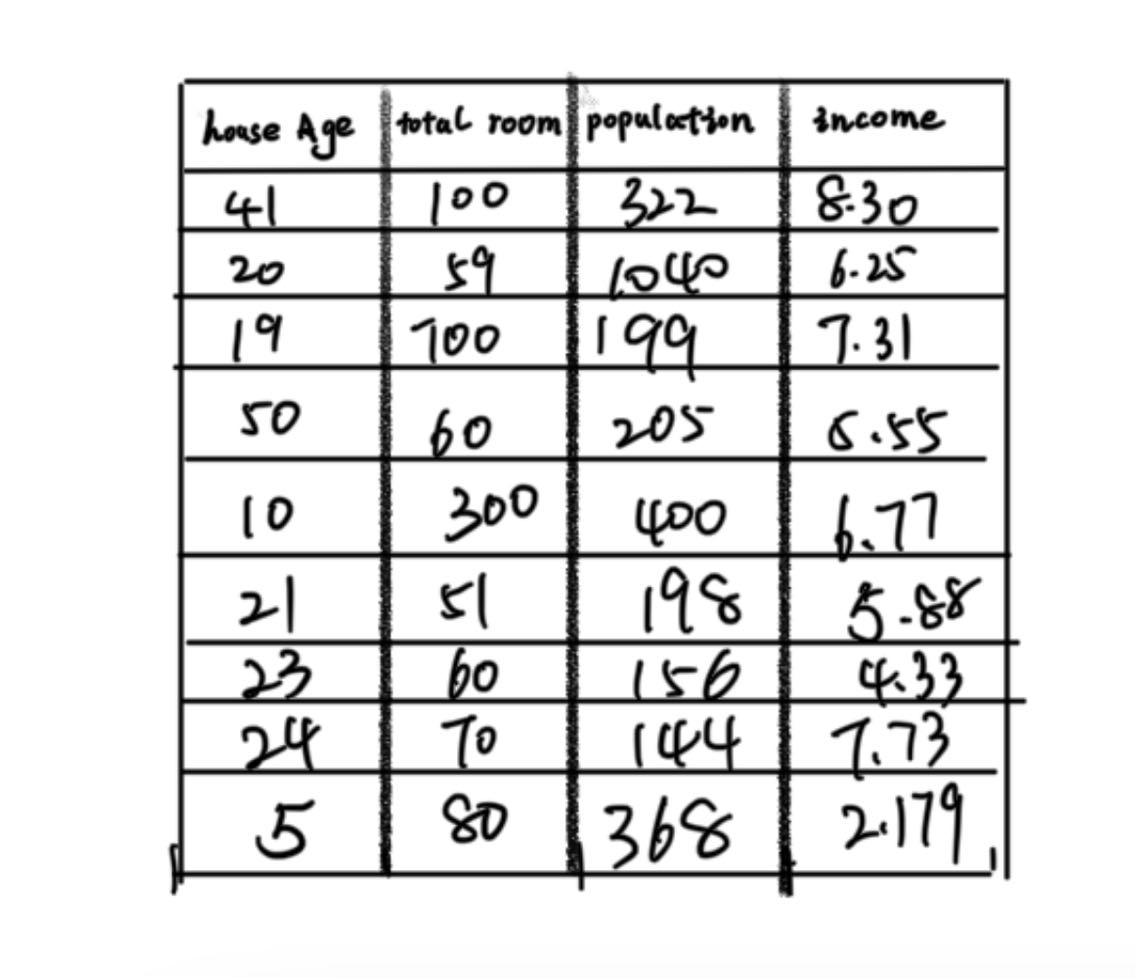 house Age total room population income
41 100 322 8.30
20 59 1.040 6.25
19 700 199 7.31
50 60 205 5.55
10 300 400 6.77
21 51 198 5.88
23 60 156 4.33
24 70 144 7.73
5 80 368 2.179